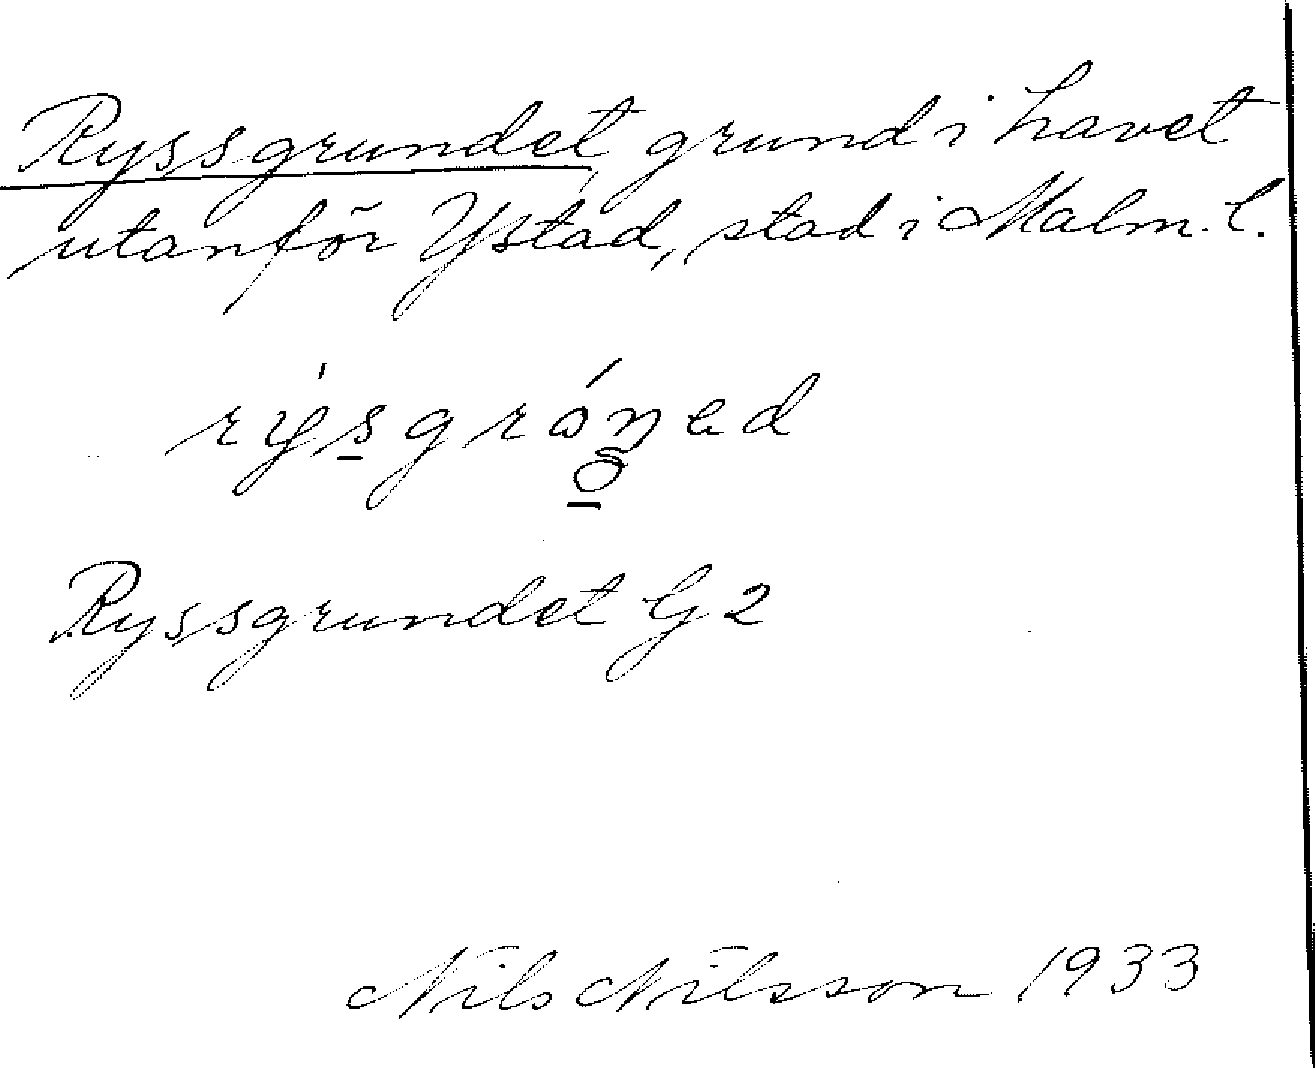 Ryssgrundet grund i havet
utanför Ystad, stad i Malm. l.
Ryssgrundet G 2
Nils Nilsson 1933